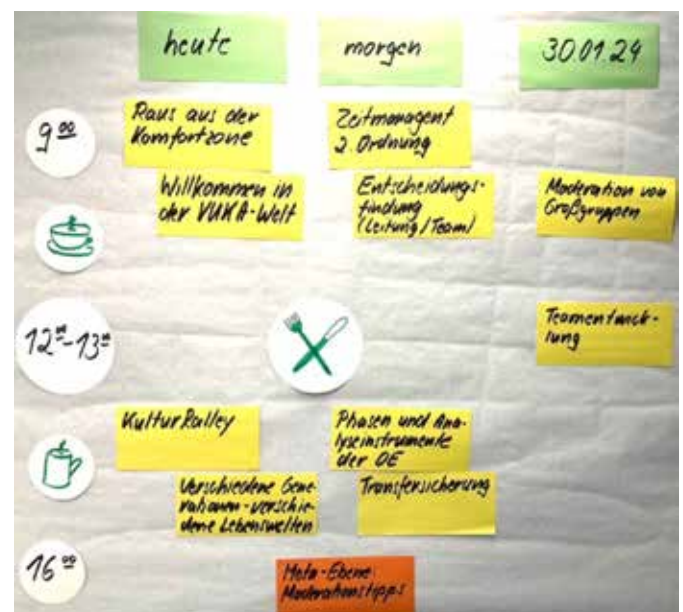 heute
morgen
30.01.24
9⁰⁰
Raus aus der
Komfortzone
Zeitmanagent
2. Ordnung
Willkommen in
der VUKA-Welt
Entscheidungs-
findung
(Leitung/Team)
Moderation von
Großgruppen
12⁰⁰-13⁰⁰
Teamentwick-
lung
KulturRalley
Phasen und Ana-
lyseinstrumente
der OE
Verschiedene Gene-
rationen-verschie-
dene Lebenswelten
Transfersicherung
16⁰⁰
Meta-Ebene:
Moderationstipps